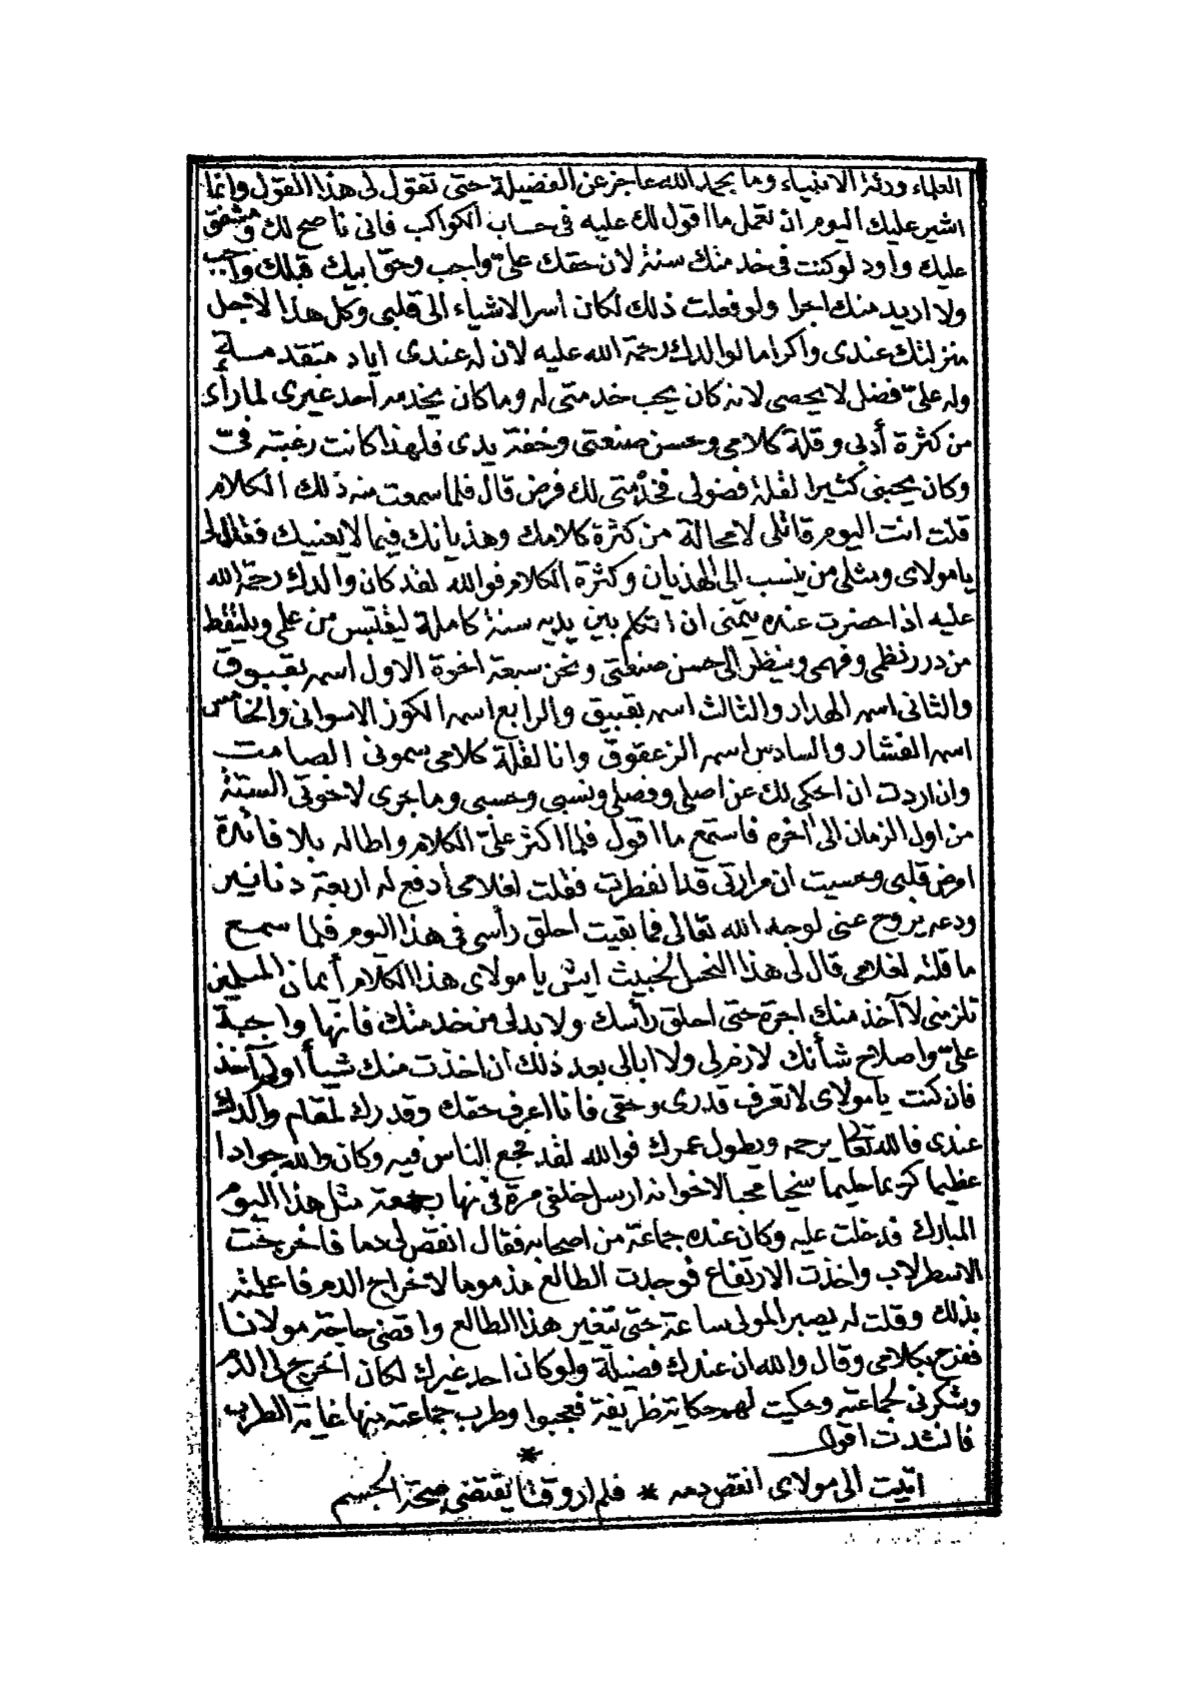 العلماء ورثة الانبياء وما بحمد الله عاجز عن الفضيلة حتى تقول لى هذا القول وانما
اشير عليك اليوم ان تعمل ما اقول لك عليه فى حساب الكواكب فانى ناصح لك ومشفق
عليك واود لو كنت فى خدمتك سنة لان حقك علىّ واجب وحق ابيك قبلك واجب
ولا اريد منك اجرا ولو فعلت ذلك لكان أسر الاشياء الى قلبى وكل هذا لاجل
منزلتك عندى واكراما لوالدك رحمة الله عليه لان له عندى اياد متقدمة
وله علىّ فضل لا يحصى لانه كان يحب خدمتى له وما كان يخدمه أحد غيرى لما رأى
من كثرة أدبى وقلة كلامى وحسن صنعتى وخفة يدى فلهذا كانت رغبته فىّ
وكان يحبنى كثيرا لقلة فضولى فخدمتى لك فرض قال فلما سمعت منه ذلك الكلام
قلت انت اليوم قاتلى لا محالة من كثرة كلامك وهذيانك فيما لا يعنيك فقال لى
يا مولاى ومثلى من ينسب الى الهذيان وكثرة الكلام فوالله لقد كان والدك رحمة الله
عليه اذا حضرت عنده يتمنى ان اتكلم بين يديه سنة كاملة ليقتبس من علمى ويلتقط
من درر نظمى وفهمى وينظر الى حسن صنعتى ونحن سبعة اخوة الاول اسمه بقبوق
والثانى اسمه الهدار والثالث اسمه بقيبق والرابع اسمه الكوز الاسوانى والخامس
اسمه الفشار والسادس اسمه الزعقوق وانا لقلة كلامى سمونى الصامت
وان اردت ان احكى لك عن اصلى وفصلى ونسبى وحسبى وما جرى لاخوتى الستة
من اول الزمان الى آخره فاستمع ما اقول فلما اكثر علىّ الكلام واطاله بلا فائدة
امرض قلبى وحسيت ان مرارتى قد انفطرت فقلت لغلامى أدفع له اربعة دنانير
ودعه يروح عنى لوجه الله تعالى فما بقيت احلق رأسى فى هذا اليوم فلما سمع
ما قلته لغلامى قال لى هذا النحس الخبيث ايش يا مولاى هذا الكلام أيمان المسلمين
تلزمنى لا آخذ منك اجرة حتى احلق رأسك ولا بد لى من خدمتك فانها واجبة
علىّ واصلاح شأنك لازم لى ولا ابالى بعد ذلك ان اخذت منك شيأ او لم آخذ
فان كنت يا مولاى لا تعرف قدرى وحقى فانا اعرف حقك وقدرك لمقام والدك
عندى فالله تعالى يرحمه ويطول عمرك فوالله لقد فجع الناس فيه وكان والله جوادا
عظيما كريما حليما سخيا محبا لاخوانه ارسل خلفى مرة فى نهار جمعة مثل هذا اليوم
المبارك فدخلت عليه وكان عنده جماعة من اصحابه فقال انقص لى دما فاخرجت
الاسطرلاب واخذت الارتفاع فوجدت الطالع مذموما لاخراج الدم فاعلمته
بذلك وقلت له يصبر المولى ساعة حتى تتغير هذا الطالع واقضى حاجة مولانا
ففرح بكلامى وقال والله ان عندك فضيلة ولو كان احد غيرك لكان أخرج لى الدم
وشكرنى لجماعته وحكيت لهم حكاية ظريفة فعجبوا وطرب جماعته منها غاية الطرب
فانشدت اقول
*
اتيت الى مولاى انقص دمه * فلم ار وقتا يقتضى صحة الجسم